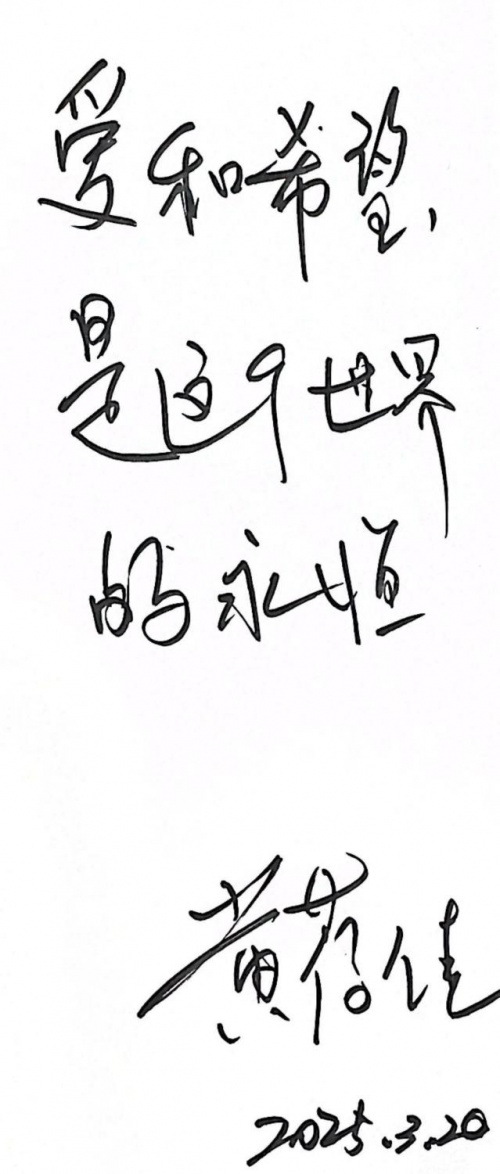 爱和希望,
是这个世界
的永恒
黄荐佳
2025.3.20